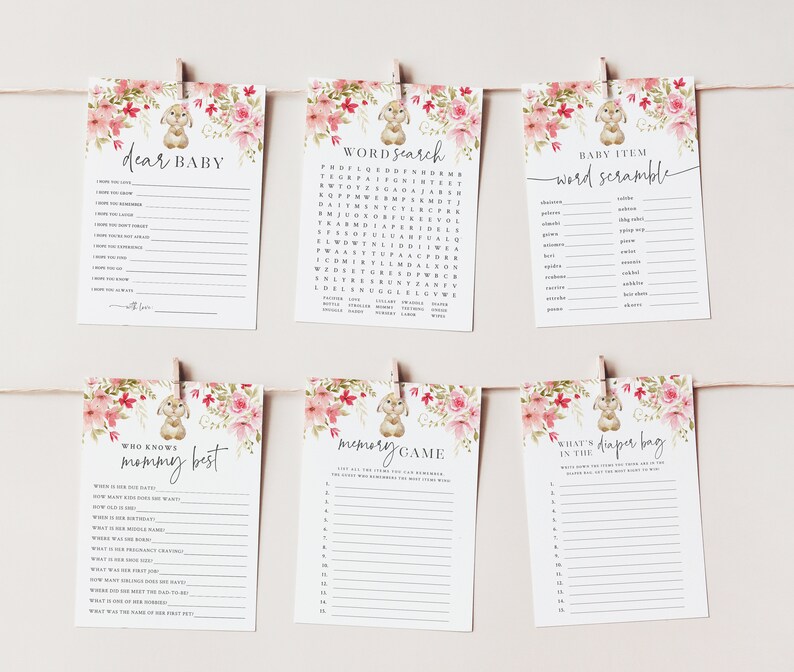 dear BABY
I HOPE YOU LOVE
I HOPE YOU GROW
I HOPE YOU REMEMBER
I HOPE YOU LAUGH
I HOPE YOU DON'T FORGET
I HOPE YOU'RE NOT AFRAID
I HOPE YOU EXPERIENCE
I HOPE YOU FIND
I HOPE YOU GO
I HOPE YOU KNOW
I HOPE YOU ALWAYS
with love
WORD search
P H D F L Q E D D F N H D R M B
T E G R P A I F G N I H T E E T
R W T O Y Z S G A O A J A B S H
K Q P P M W E B M P S K M D Y L
D A I Y M S N Y C Y L R C P B K
B M J U O X O B F U K E E V O L
Y K A B M D I A P E R I D E L S
S F S S O F U L U A H F U A L Q
E L W D W T N L I D D I I W E A
P W A A S Y T U P A A C P D R R
I C D M I R Y L L M D A X L O N
W Z D S E T G R E S D P W B C E
S N L Y R E S R U N Y Z A N F V
L D E L S N U G G L E L G V W E
PACIFIER LOVE LULLABY SWADDLE DIAPER
BOTTLE STROLLER MOMMY TEETHING ONESIE
SNUGGLE DADDY NURSERY LABOR WIPES
BABY ITEM
word scramble
WHO KNOWS
mommy best
WHEN IS HER DUE DATE?
HOW MANY KIDS DOES SHE WANT?
HOW OLD IS SHE?
WHEN IS HER BIRTHDAY?
WHAT IS HER MIDDLE NAME?
WHERE WAS SHE BORN?
WHAT IS HER PREGNANCY CRAVING?
WHAT IS HER SHOE SIZE?
WHAT WAS HER FIRST JOB?
HOW MANY SIBLINGS DOES SHE HAVE?
WHERE DID SHE MEET THE DAD-TO-BE?
WHAT IS ONE OF HER HOBBIES?
WHAT WAS THE NAME OF HER FIRST PET?
memory GAME
LIST ALL THE ITEMS YOU CAN REMEMBER.
THE GUEST WHO REMEMBERS THE MOST ITEMS WINS!
1.
2.
3.
4.
5.
6.
7.
8.
9.
10.
11.
12.
13.
14.
15.
WHAT'S
IN THE diaper bag
WRITE DOWN THE ITEMS YOU THINK ARE IN THE
DIAPER BAG. GET THE MOST RIGHT TO WIN!
1.
2.
3.
4.
5.
6.
7.
8.
9.
10.
11.
12.
13.
14.
15.